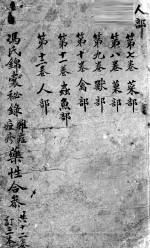 人部
第七卷 菜部
第八卷 菓部
第九卷 獸部
第十卷 禽部
第十一卷 蟲魚部
第十二卷 人部
馮氏錦囊秘錄 雜症痘疹 藥性合參 共十二卷 訂三本